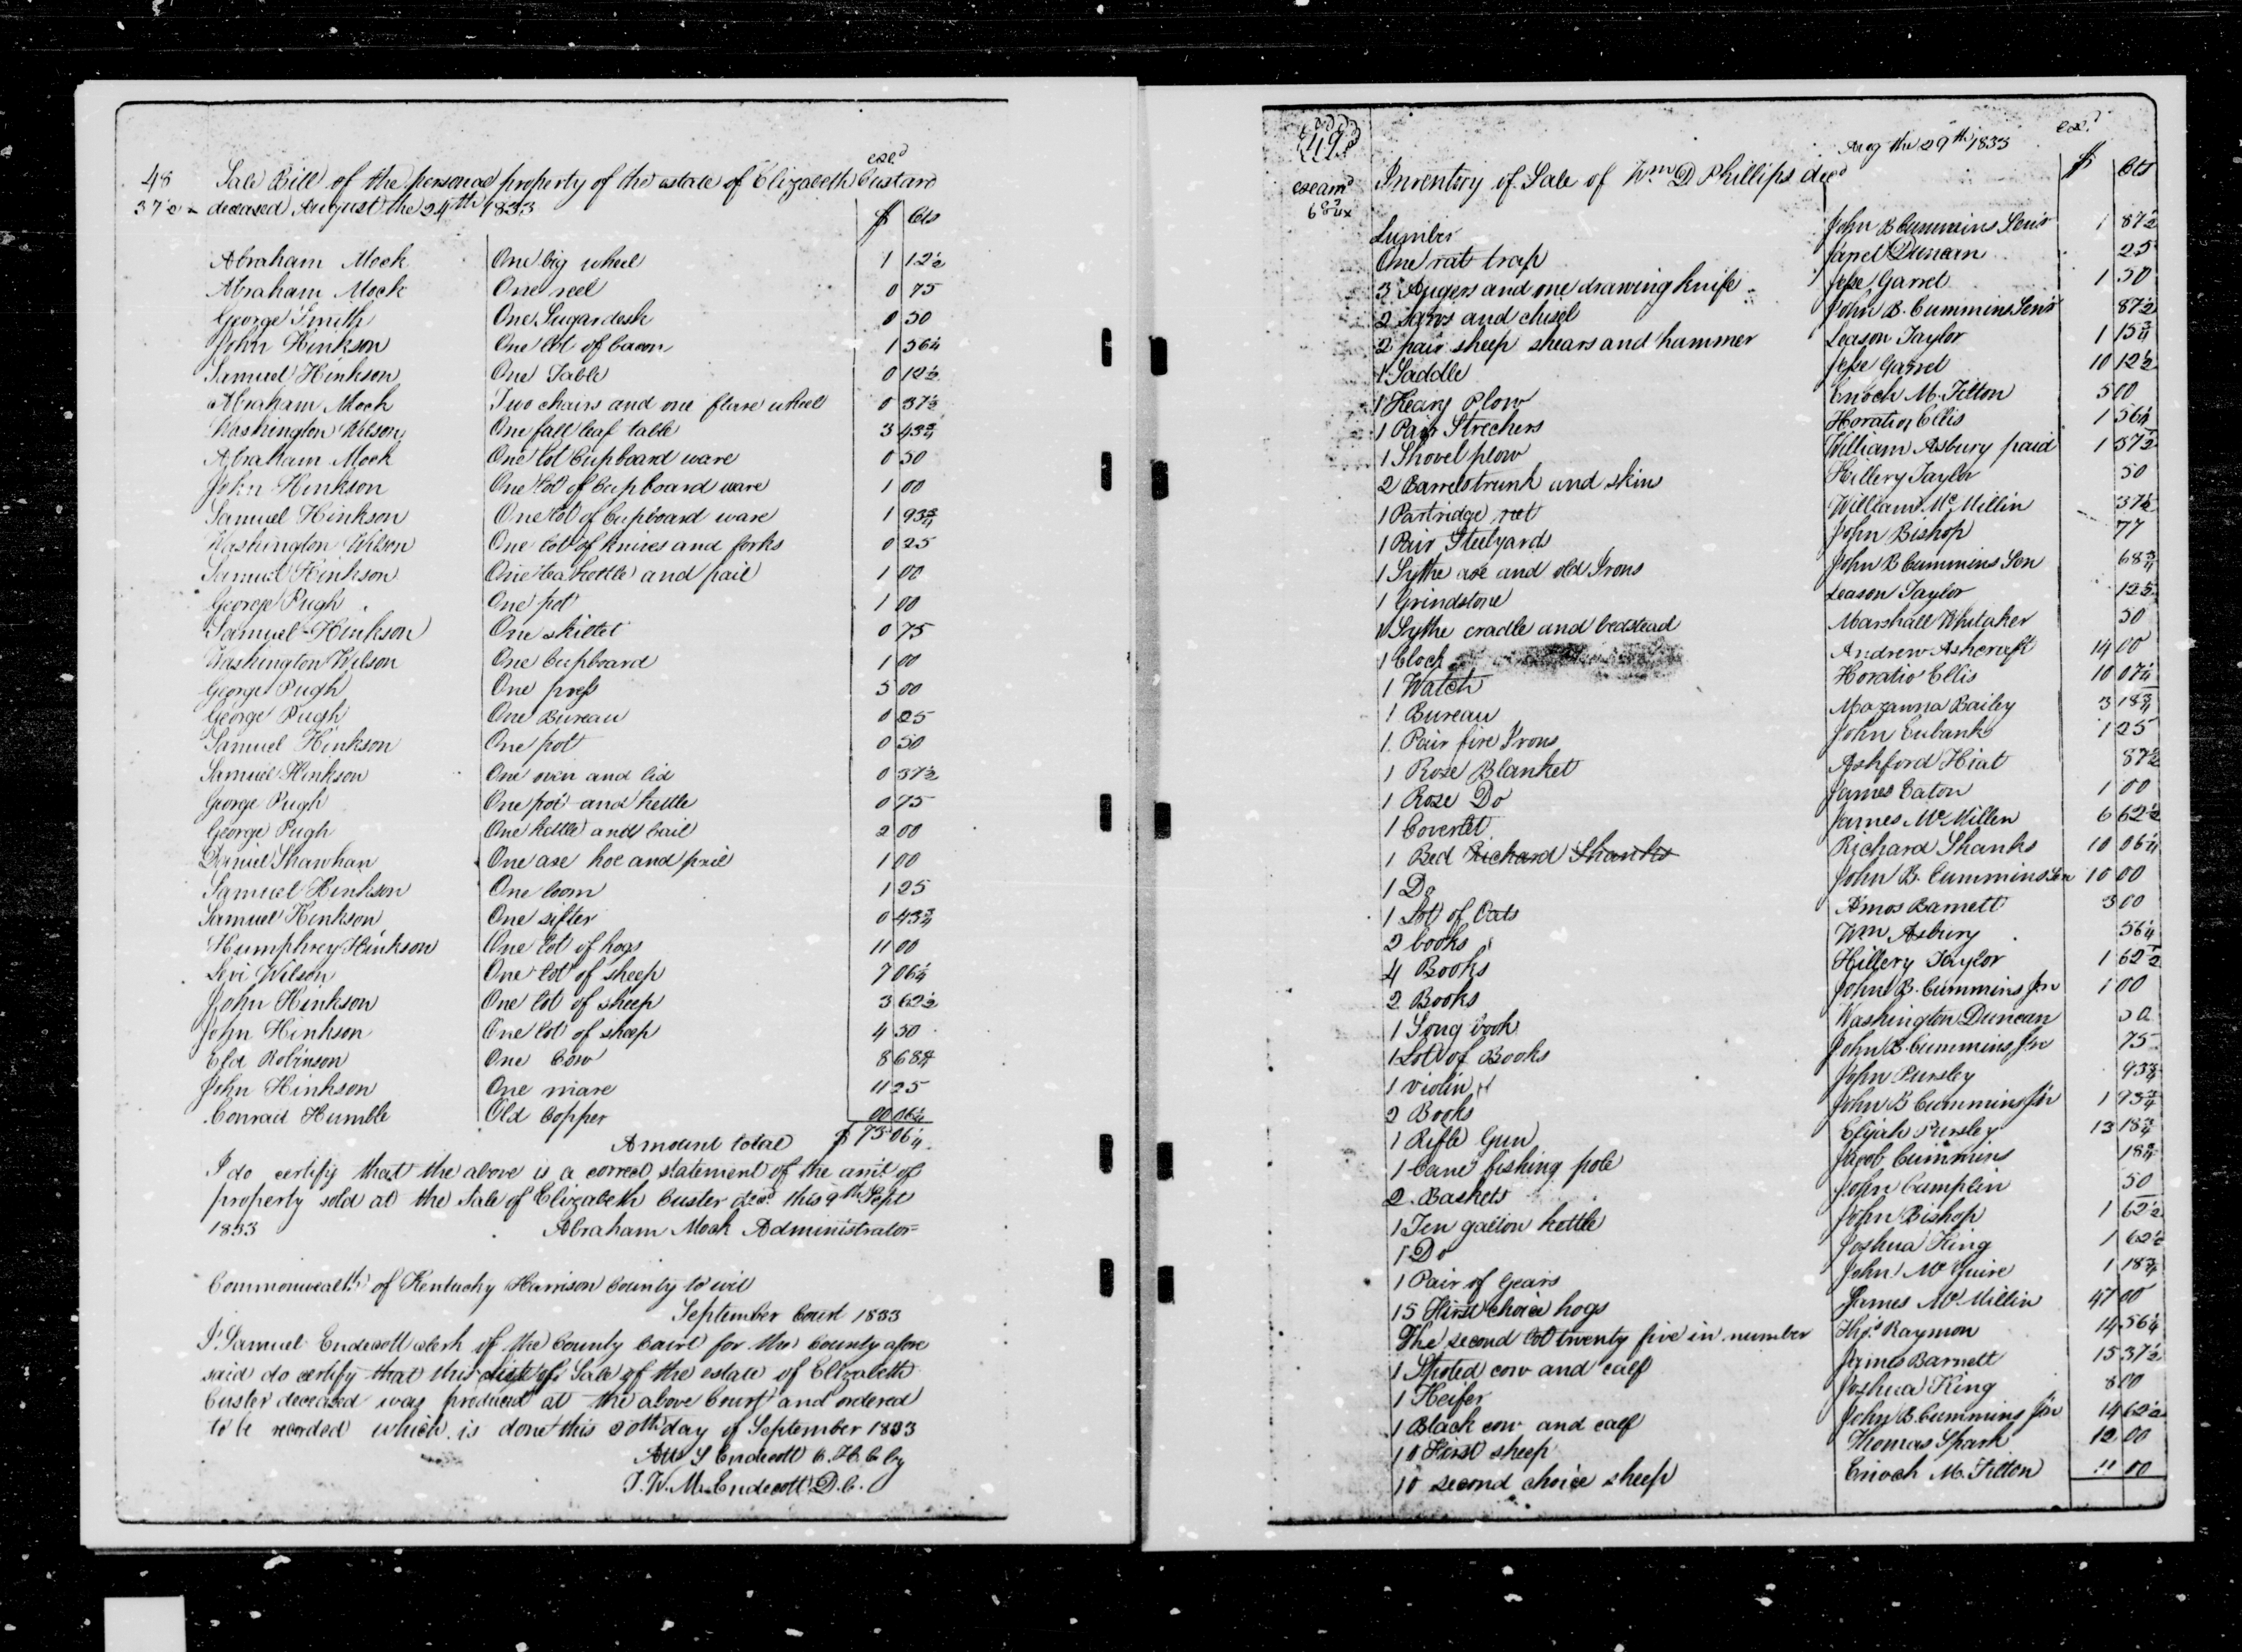 exd
48 Sale Bill of the personal property of the estate of Elizabeth Custard
37½ deceased August the 24th 1833
$ Cts
Abraham Mock One big wheel 1 12½
Abraham Mock One reel 0 75
George Smith One Sugar desk 0 50
John Hinkson One lot of bacon 1 56¼
Samuel Hinkson One Table 0 12½
Abraham Mock Two chairs and one flax wheel 0 37½
Washington Wilson One fall leaf table 3 43¾
Abraham Mock One lot Cupboard ware 0 50
John Hinkson One lot of Cupboard ware 1 00
Samuel Hinkson One lot of Cupboard ware 1 93¾
Washington Wilson One lot of knives and forks 0 25
Samuel Hinkson One tea kettle and pail 1 00
George Pugh One pot 1 00
Samuel Hinkson One skillet 0 75
Washington Wilson One Cupboard 1 00
George Pugh One press 5 00
George Pugh One Bureau 0 25
Samuel Hinkson One pot 0 50
Samuel Hinkson One oven and lid 0 37½
George Pugh One pot and kettle 0 75
George Pugh One kettle and bail 2 00
Daniel Shawhan One axe hoe and pail 1 00
Samuel Hinkson One loom 1 25
Samuel Hinkson One sifter 0 43¾
Humphrey Hinkson One lot of hogs 11 00
Levi Wilson One lot of sheep 7 06¼
John Hinkson One lot of sheep 3 62½
John Hinkson One lot of sheep 4 50
Robinson One Cow 8 68¾
John Hinkson One mare 11 25
Conrad Humble Old Copper 00 06¼
Amount total $ 75 06¼
I do certify that the above is a correct statement of the amt of
property sold at the Sale of Elizabeth Custer decd this 9th Sept
1833 Abraham Mock Administrator
Commonwealth of Kentucky Harrison County to wit
September Court 1833
I Samuel Endecott clerk of the County Court for the County afore
said do certify that this list of Sale of the estate of Elizabeth
Custer deceased was produced at the above Court and ordered
to be recorded which is done this 20th day of September 1833
Att S Endecott C.H.C by
J.W.M. Endecott D.C.
49
exd
Aug the 29th 1833
examd Inventory of Sale of Wm D Phillips decd
$ Cts
Lumber John B Cummins Senr 1 87½
One rat trap Jarret Duncan 25
3 Augers and one drawing knife Jesse Garret 1 50
2 Saws and chisel John B. Cummins Senr 87½
2 pair sheep shears and hammer Leason Taylor 1 15¾
1 Saddle Jesse Garret 10 12½
1 Heavy Plow Enoch M. Tilton 5 00
1 Pair Strechers Horatio Ellis 1 56¼
1 Shovel plow William Asbury paid 1 37½
2 Barrels trunk and skin Hillery Taylor 50
1 Partridge net William McMillin 37½
1 Pair Steelyards John Bishop 77
1 Sythe axe and old Irons John B Cummins Sen 68¾
1 Grindstone Leason Taylor 12½
1 Sythe cradle and bedstead Marshall Whitaker 50
1 Clock Andrew Ashcraft 14 00
1 Watch Horatio Ellis 10 07¼
1 Bureau Mozanna Bailey 3 18¾
1 Pair fire Irons John Eubanks 1 25
1 Rose Blanket Ashford Hiat 87½
1 Rose Do James Eaton 1 00
1 Coverlet James McMillen 6 62½
1 Bed Richard Shanks Richard Shanks 10 06¼
1 Do John B. Cummins Sen 10 00
1 Lot of Oats Amos Barnett 3 00
2 books Wm Asbury 56¼
4 Books Hillery Taylor 1 62½
2 Books John B. Cummins Jnr 1 00
1 Song book Washington Duncan 50
1 Lot of Books John B. Cummins Jnr 75
1 violin John Pursley 93¾
2 Books John B Cummins Jnr 1 93¾
1 Rifle Gun Elijah Pursley 13 18¾
1 Cane fishing pole Jacob Cummins 18¾
2 Baskets John Camplin 50
1 Ten gallon kettle John Bishop 1 62½
1 Do Joshua King 1 62½
1 Pair of Gears John McGuire 1 18¾
15 First choice hogs James McMillin 47 00
The second lot twenty five in number Raymon 14 56¼
1 Spoted cow and calf James Barnett 15 37½
1 Heifer Joshua King 8 00
1 Black cow and calf John B. Cummins Jnr 14 62½
10 First sheep Thomas Spark 12 00
10 second choice sheep Enoch M. Tilton 11 00